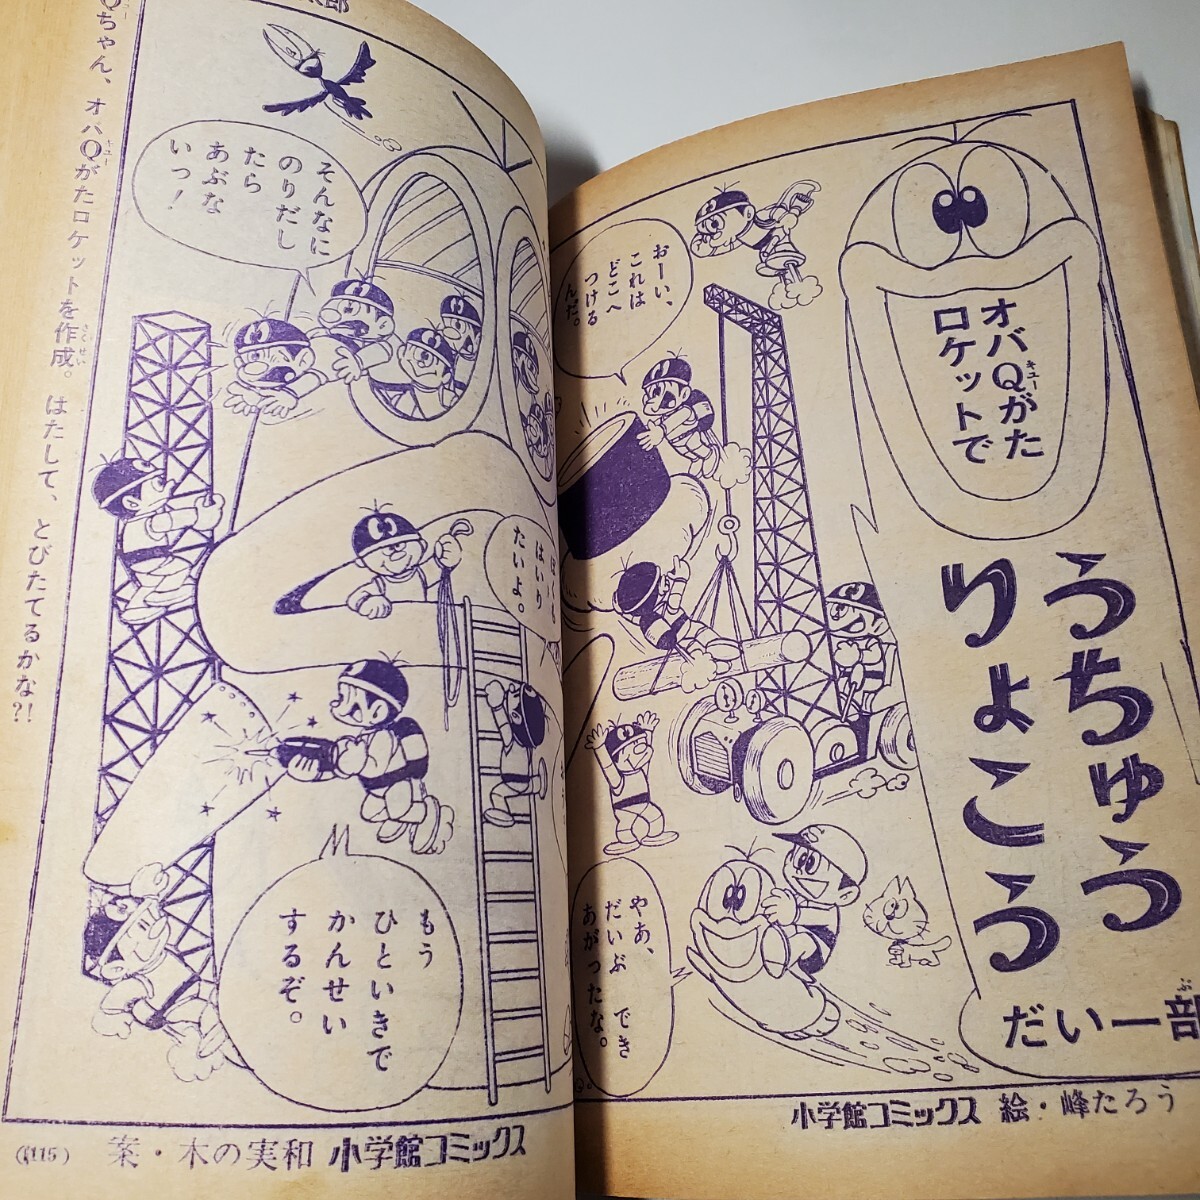 オバQがた
ロケットで
うちゅう
りょこう
だい一部
おーい、
これは
どこへ
つける
んだ。
やあ、
だいぶ でき
あがったな。
小学館コミックス 絵・峰たろう
そんなに
のりだし
たら
あぶな
いっ!
はいり
たいよ。
もう
ひといきで
かんせい
するぞ。
Qちゃん、オバQがたロケットを作成。はたして、とびたてるかな?!
(115) 案・木の実和 小学館コミックス